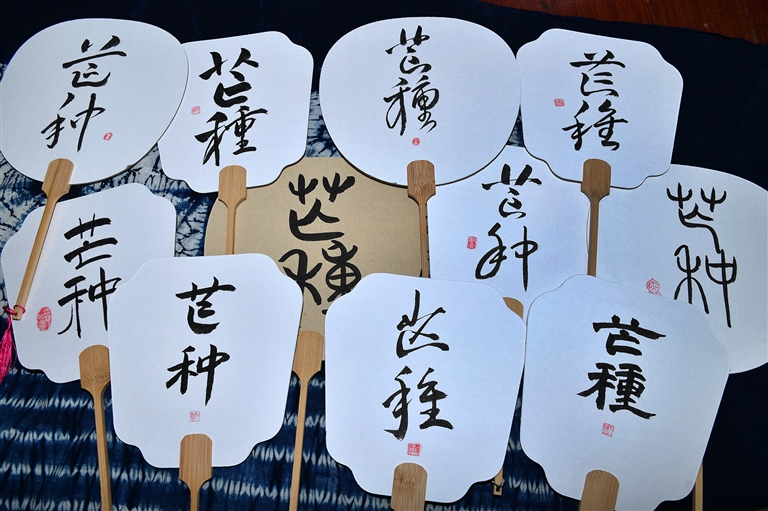 芒种
芒種
芒種
芒種
芒种
芒種
芒种
芒种
芒种
芒種
芒種